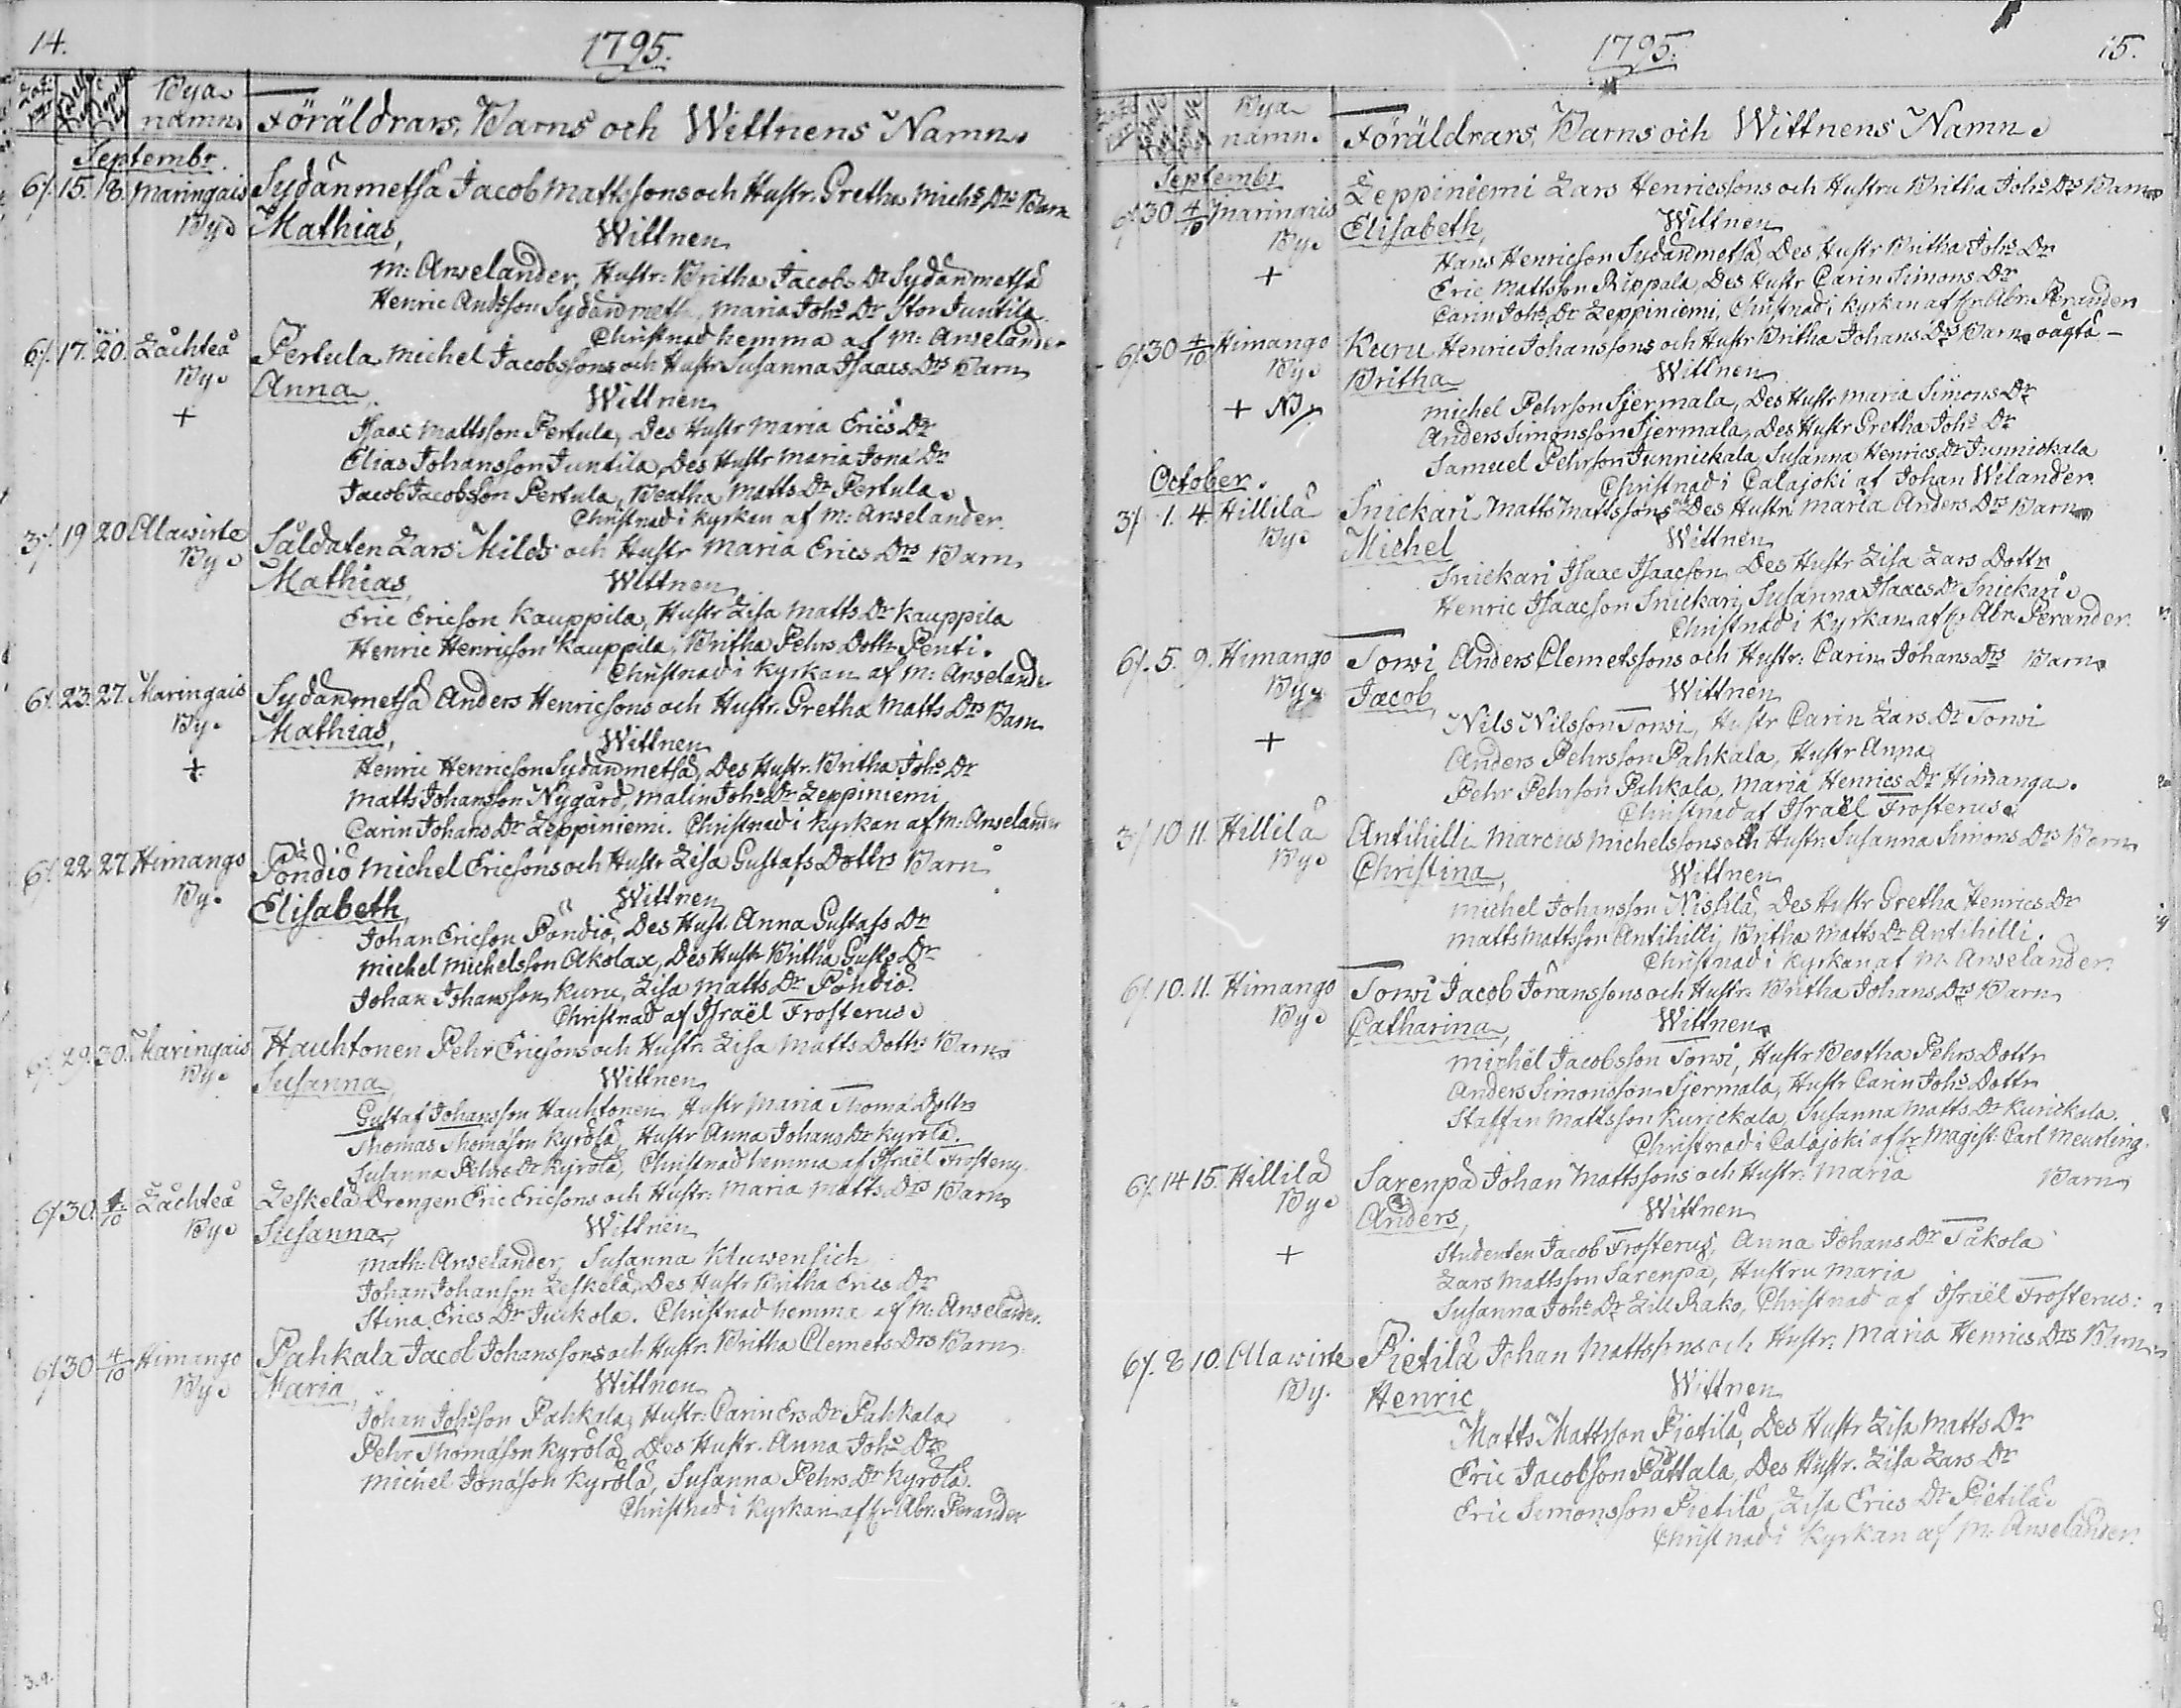 14.
1795.
Bya namn.
Föräldrars, Barns och Wittnens Namn.
Septembr.
6/. 15. 18. Maringais By. Sydänmetsä Jacob Mattssons och Hustr. Gretha Michs Drs Barn
Mathias, Wittnen
M: Anselander, Hustr: Britha Jacobs Dr Sydänmetsä
Henric Andsson Sydänmetsä, Maria Johs Dr Stor Juntila
Christnad hemma af M: Anselander
6/. 17. 20. Låchteå By. Pertula Michel Jacobssons och Hustr Susanna Isaacs Drs Barn
Anna, Wittnen
+
Isaac Mattsson Pertula, Des Hustr Maria Erics Dr
Elias Johansson Juntila, Des Hustr Maria Jona Dr
Jacob Jacobsson Pertula, Beatha Matts Dr Pertula.
Christnad i Kyrkan af M: Anselander.
3/. 19 20 Alawirte By. Såldaten Lars Milds och Hustr Maria Erics Drs Barn
Mathias, Wittnen
Eric Ericson Kauppila, Hustr Lisa Matts Dr Kauppila
Henric Henricson Kauppila, Britha Pehrs Dottr Penti.
Christnad i Kyrkan af M: Anselander
6/. 23. 27. Maringais By. Sydänmetsä Anders Henricsons och Hustr. Gretha Matts Drs Barn
Mathias, Wittnen
+
Henric Henricson Sydänmetsä, Des Hustr. Britha Johs Dr
Matts Johansson Nygård, Malin Johs Dr Leppiniemi
Carin Johans Dr Leppiniemi. Christnad i Kyrkan af M: Anselander
6/. 22 27 Himango By. Pöndiö Michel Ericsons och Hustr Lisa Gustafs Dottrs Barn
Elisabeth Wittnen
Johan Ericson Pöndiö, Des Hust. Anna Gustafs Dr
Michel Michelsson Akola, Des Hustr Britha Gustfs Dr
Johan Johansson Kuru, Lisa Matts Dr Pöndiö.
Christnad af Israël Frosterus.
6/. 29. 30. Maringais By. Hauhtonen Pehr Ericsons och Hustr Lisa Matts Dottrs Barn
Susanna, Wittnen
Gustaf Johansson Hauhtonen, Hustr Maria Thoma Dottr
Thomas Thomason Kyrölä, Hustr Anna Johans Dr Kyrölä.
Susanna Pehrs Dr Kyrölä, Christnad hemma af Israël Frosterus
6/. 30. 1/10 Låchteå By. Leskelä Drengen Eric Ericsons och Hustr: Maria Matts Drs Barn
Susanna, Wittnen
Math: Anselander, Susanna Kluwensich
Johan Johanson Leskelä, Des Hustr Britha Erics Dr
Stina Erics Dr Juckola. Christnad hemma af M: Anselander.
6/. 30 4/10 Himango By. Pahkala Jacob Johanssons och Hustr. Britha Clemets Drs Barn
Maria, Wittnen
Johan Johsson Pahkala, Hustr: Carin Ers Dr Pahkala
Pehr Thomason Kyrölä, Des Hustr. Anna Johs Dr
Michel Jonason Kyrölä, Susanna Pehrs Dr Kyrölä.
Christnad i Kyrkan af Hr Abr. Perander
3.9.
1795.
15.
Bya namn.
Föräldrars, Barns och Wittnens Namn.
Septembr
6/. 30 4/10 Maringais By. Leppiniemi Lars Henricssons och Hustru Britha Johs Drs Barn
Elisabeth, Wittnen
+
Hans Henricson Sydänmetsä, Des Hustr Britha Johs Dr
Eric Mattsson Rippala, Des Hustr Carin Simons Dr
Carin Johs Dr Leppiniemi, Christnad i Kyrkan af Hr Abr. Perander
6/. 30 4/10 Himango By. Kuru Henric Johanssons och Hustr Britha Johans Drs Barn oägta -
Britha Wittnen
+ NB.
Michel Pehrson Sjermala, Des Hustr Maria Simons Dr
Anders Simonsson Sjermala, Des Hustr Gretha Johs Dr
Samuel Pehrson Junnickala, Susanna Henrics Dr Junnickala
Christnad i Calajoki af Johan Wilander.
October.
3/. 1. 4. Hillilä By. Snickari Matts Mattssons och Des Hustr. Maria Anders Drs Barn
Michel Wittnen
Snickari Isaac Isaacson, Des Hustr Lisa Lars Dottr
Henric Isaacson Snickari, Susanna Isaacs Dr Snickari.
Christnad i Kyrkan af Hr Abr. Perander.
6/. 5. 9. Himango By. Torwi Anders Clemetssons och Hustr: Carin Johans Drs Barn
Jacob, Wittnen
+
Nils Nilsson Torwi, Hustr Carin Lars Dr Torwi
Anders Pehrsson Pahkala, Hustr Anna
Pehr Pehrson Pahkala, Maria Henrics Dr Himanga.
Christnad af Israël Frosterus.
3/. 10 11. Hillilä By. Antihilli Marcus Michelssons och Hustr: Susanna Simons Drs Barn
Christina, Wittnen
Michel Johansson Nissilä, Des Hustr Gretha Henrics Dr
Matts Mattsson Antihilli, Britha Matts Dr Antihilli.
Christnad i Kyrkan af M. Anselander.
6/. 10. 11. Himango By. Torwi Jacob Göranssons och Hustr. Britha Johans Drs Barn
Catharina, Wittnen
Michel Jacobsson Torwi, Hustr Beatha Pehrs Dottr
Anders Simonsson Sjermala, Hustr Carin Johs Dottr
Staffan Mattsson Kurickala, Susanna Matts Dr Kurickala.
Christnad i Calajoki af Hr Magist: Carl Meurling.
6/. 14 15. Hillilä By. Sarenpä Johan Mattssons och Hustr: Maria Barn
Anders, Wittnen
+
Studenten Jacob Frosterus, Anna Johans Dr Tåkola
Lars Mattsson Sarenpä, Hustru Maria
Susanna Johs Dr Lill Rako, Christnad af Israël Frosterus:
6/. 8 10. Alawirte By. Pietilä Johan Mattssons och Hustr: Maria Henrics Drs Barn
Henric Wittnen
Matts Mattsson Pietilä, Des Hustr Lisa Matts Dr
Eric Jacobson Pättala, Des Hustr. Lisa Lars Dr
Eric Simonsson Pietilä, Lisa Erics Dr Pietilä.
Christnad i Kyrkan af M: Anselander.